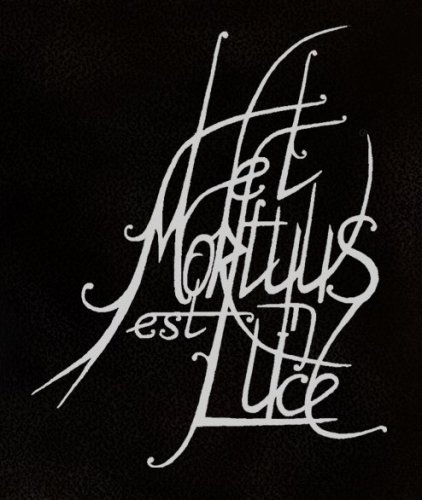 Het
MORtuus
est in
Luce